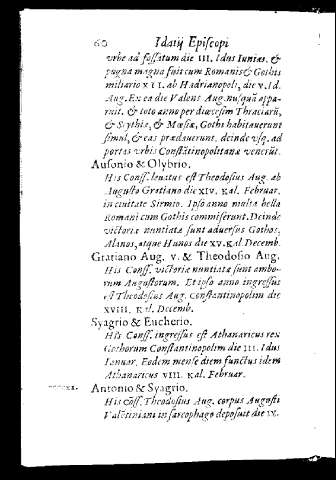 60 Idatij Episcopi
vrbe ad fossatum die III. Idus Iunias. &
pugna magna fuit cum Romanis & Gothis
miliario XII. ab Hadrianopoli, die v. Id.
Aug. Ex ea die Valens Aug. nusquã appa-
ruit. & toto anno per diœcesim Thraciarũ,
& Scythiæ, & Mœsiæ, Gothi habitauerunt
simul, & eas prædauerunt. deinde vsq. ad
portas vrbis Constãtinopolitanæ venerũt.
Ausonio & Olybrio.
His Conss. leuatus est Theodosius Aug. ab
Augusto Gratiano die XIV. Kal. Februar.
in ciuitate Sirmio. Ipso anno multa bella
Romani cum Gothis commiserunt. Deinde
victoriæ nuntiatæ sunt aduersus Gothos,
Alanos, atque Hunos die XV. Kal. Decemb.
Gratiano Aug. v. & Theodosio Aug.
His Conss. victoriæ nuntiatæ sunt ambo-
rum Augustorum. Et ipso anno ingressus
est Theodosius Aug. Constantinopolim die
XVIII. Kal. Decemb.
Syagrio & Eucherio.
His Conss. ingressus est Athanaricus rex
Gothorum Constantinopolim die III. Idus
Ianuar. Eodem mense diem functus idem
Athanaricus VIII. Kal. Februar.
Antonio & Syagrio.
His cõss. Theodosius Aug. corpus Augusti
Valẽtiniani in sarcophago deposuit die IX.